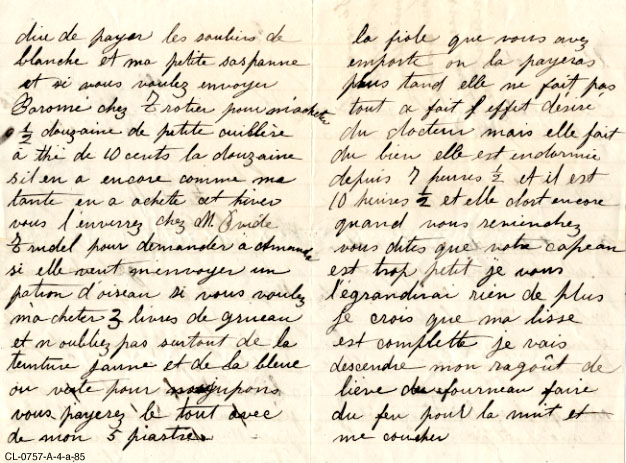 dire de payer les souliers de
blanche et ma petite saspanne
et si vous voulez envoyer
Barome chez Trotier pour m'acheter
½ douzaine de petite cuiblère
à thé de 10 cents la douzaine
s'il en a encore comme ma
tante en a acheté cet hiver
vous l'enverrez chez M Ovide
Trudel pour demander a Amanda
si elle veut m'envoyer un
patron d'oiseau si vous voulez
m'acheter 3 livres de grueau
et n oubliez pas surtout de la
teinture jaune et de la bleue
ou verte pour jupons
vous payerez le tout avec
de mon 5 piastres
la fiole que vous avez
emporté on la payeras
plus tard elle ne fait pas
tout a fait l effet désiré
du docteur mais elle fait
du bien elle est endormie
depuis 7 heures ½ et il est
10 heures ½ et elle dort encore
quand vous reviendrez
vous dites que votre capeau
est trop petit je vous
l'égrandirai rien de plus
Je crois que ma lisse
est complette je vais
descendre mon ragoût de
lièvre du fourneau faire
du feu pour la nuit et
me coucher
CL-0757-A-4-a-85